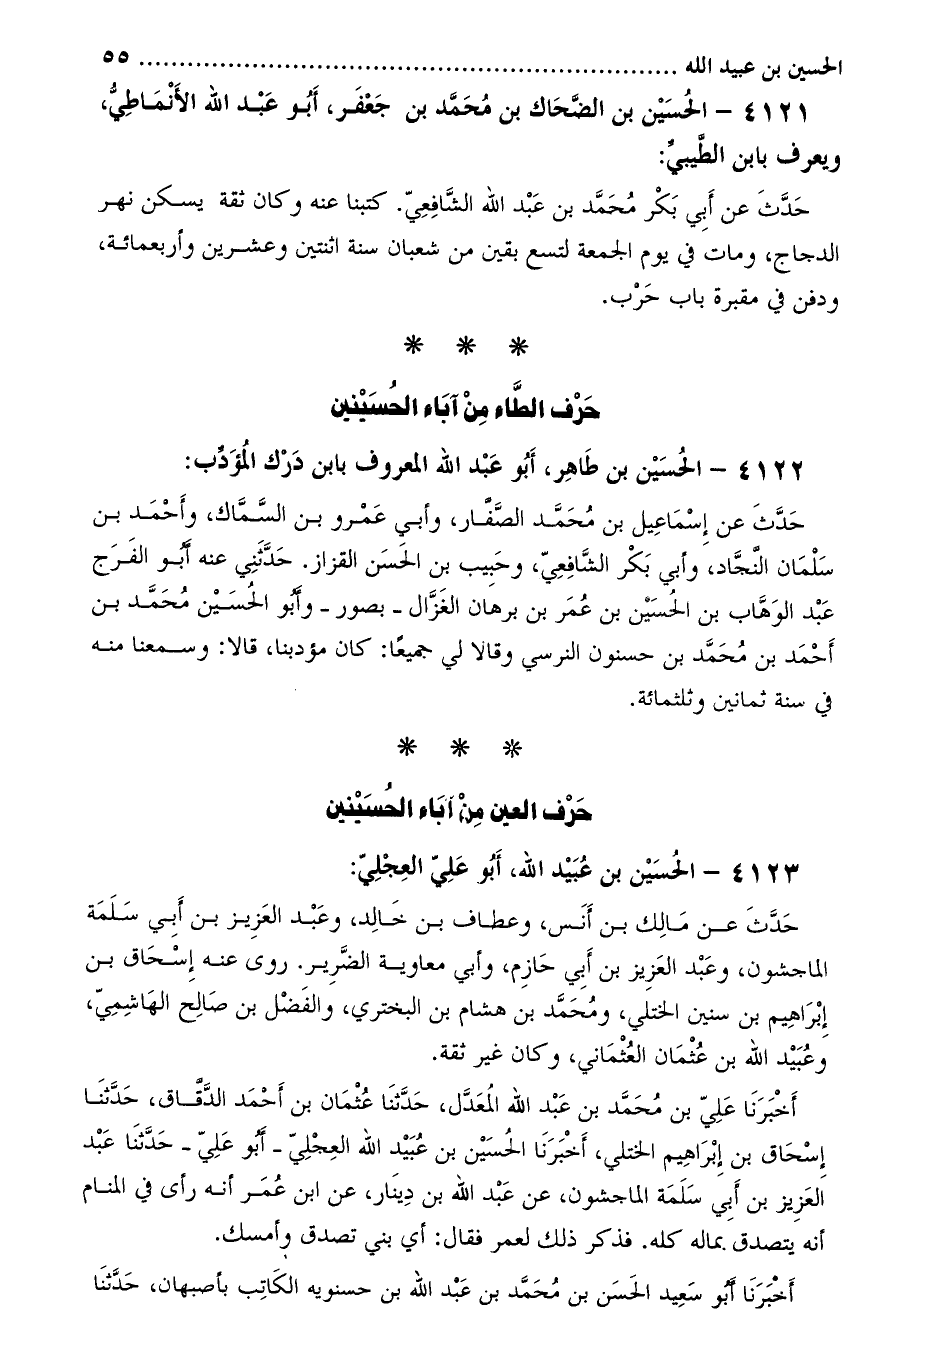 الحسين بن عبيد الله ................................................................ ٥٥
٤١٢١ - الحُسَيْن بن الضَّحَاك بن مُحَمَّد بن جَعْفَر، أَبُو عَبْد الله الأَنْمَاطِيُّ،
ويعرف بابن الطَّيبيِّ:
حَدَّثَ عن أَبِي بَكْر مُحَمَّد بن عَبْد الله الشَّافِعِيّ. كتبنا عنه وكان ثقة يسكن نهر
الدجاج، ومات في يوم الجمعة لتسع بقين من شعبان سنة اثنتين وعشرين وأربعمائة،
ودفن في مقبرة باب حَرْب.
* * *
حَرْف الطَّاء مِنْ آبَاء الحُسَيْنين
٤١٢٢ - الحُسَيْن بن طَاهِر، أَبُو عَبْد الله المعروف بابن دَرْك المُؤَدِّب:
حَدَّثَ عن إِسْمَاعِيل بن مُحَمَّد الصَّفَّار، وأبي عَمْرو بن السَّمَّاك، وأَحْمَد بن
سَلْمَان النَّجَّاد، وأبي بَكْر الشَّافِعِيّ، وحَبِيب بن الحَسَن القزاز. حَدَّثَنِي عنه أَبُو الفَرَج
عَبْد الوَهَّاب بن الحُسَيْن بن عُمَر بن برهان الغَزَّال ـ بصور ـ وأَبُو الحُسَيْن مُحَمَّد بن
أَحْمَد بن مُحَمَّد بن حسنون النرسي وقالا لي جميعًا: كان مؤدبنا، قالا: وسمعنا منه
في سنة ثمانين وثلثمائة.
* * *
حَرْف العين مِنْ آبَاء الحُسَيْنين
٤١٢٣ - الحُسَيْن بن عُبَيْد الله، أَبُو عَلِيّ العِجْلِيّ:
حَدَّثَ عن مَالِك بن أَنَس، وعطاف بن خَالِد، وعَبْد العَزِيز بن أَبِي سَلَمَة
الماجشون، وعَبْد العَزِيز بن أَبِي حَازِم، وأبي معاوية الضَّرِير. روى عنه إِسْحَاق بن
إِبْرَاهِيم بن سنين الختلي، ومُحَمَّد بن هشام بن البختري، والفَضْل بن صَالِح الهَاشِمِيّ،
وعُبَيْد الله بن عُثْمَان العُثْمَاني، وكان غير ثقة.
أَخْبَرَنَا عَلِيّ بن مُحَمَّد بن عَبْد الله المُعَدَّل، حَدَّثَنَا عُثْمَان بن أَحْمَد الدَّقَّاق، حَدَّثَنَا
إِسْحَاق بن إِبْرَاهِيم الختلي، أَخْبَرَنَا الحُسَيْن بن عُبَيْد الله العِجْلِيّ ـ أَبُو عَلِيّ ـ حَدَّثَنَا عَبْد
العَزِيز بن أَبِي سَلَمَة الماجشون، عن عَبْد الله بن دِينَار، عن ابن عُمَر أنه رأى في المنام
أنه يتصدق بماله كله. فذكر ذلك لعمر فقال: أي بني تصدق وأمسك.
أَخْبَرَنَا أَبُو سَعِيد الحَسَن بن مُحَمَّد بن عَبْد الله بن حسنويه الكَاتِب بأصبهان، حَدَّثَنَا